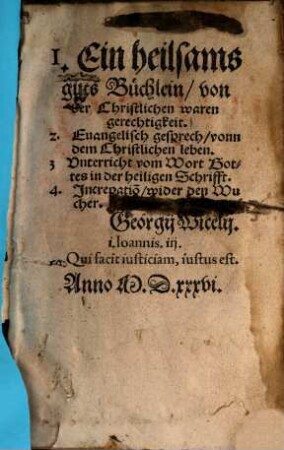 1. Ein heilsams
guts Büchlein / von
der Christlichen waren
gerechtigkeit.
2. Euangelisch gesprech / vonn
dem Christlichen leben.
3 Vnterricht vom Wort Got-
tes in der heiligen Schrifft.
4. Increpatiõ / wider den Wu
cher.
Georgij Wicelij.
i. Ioannis. iij.
Qui facit iusticiam, iustus est.
Anno M. D. xxxvi.